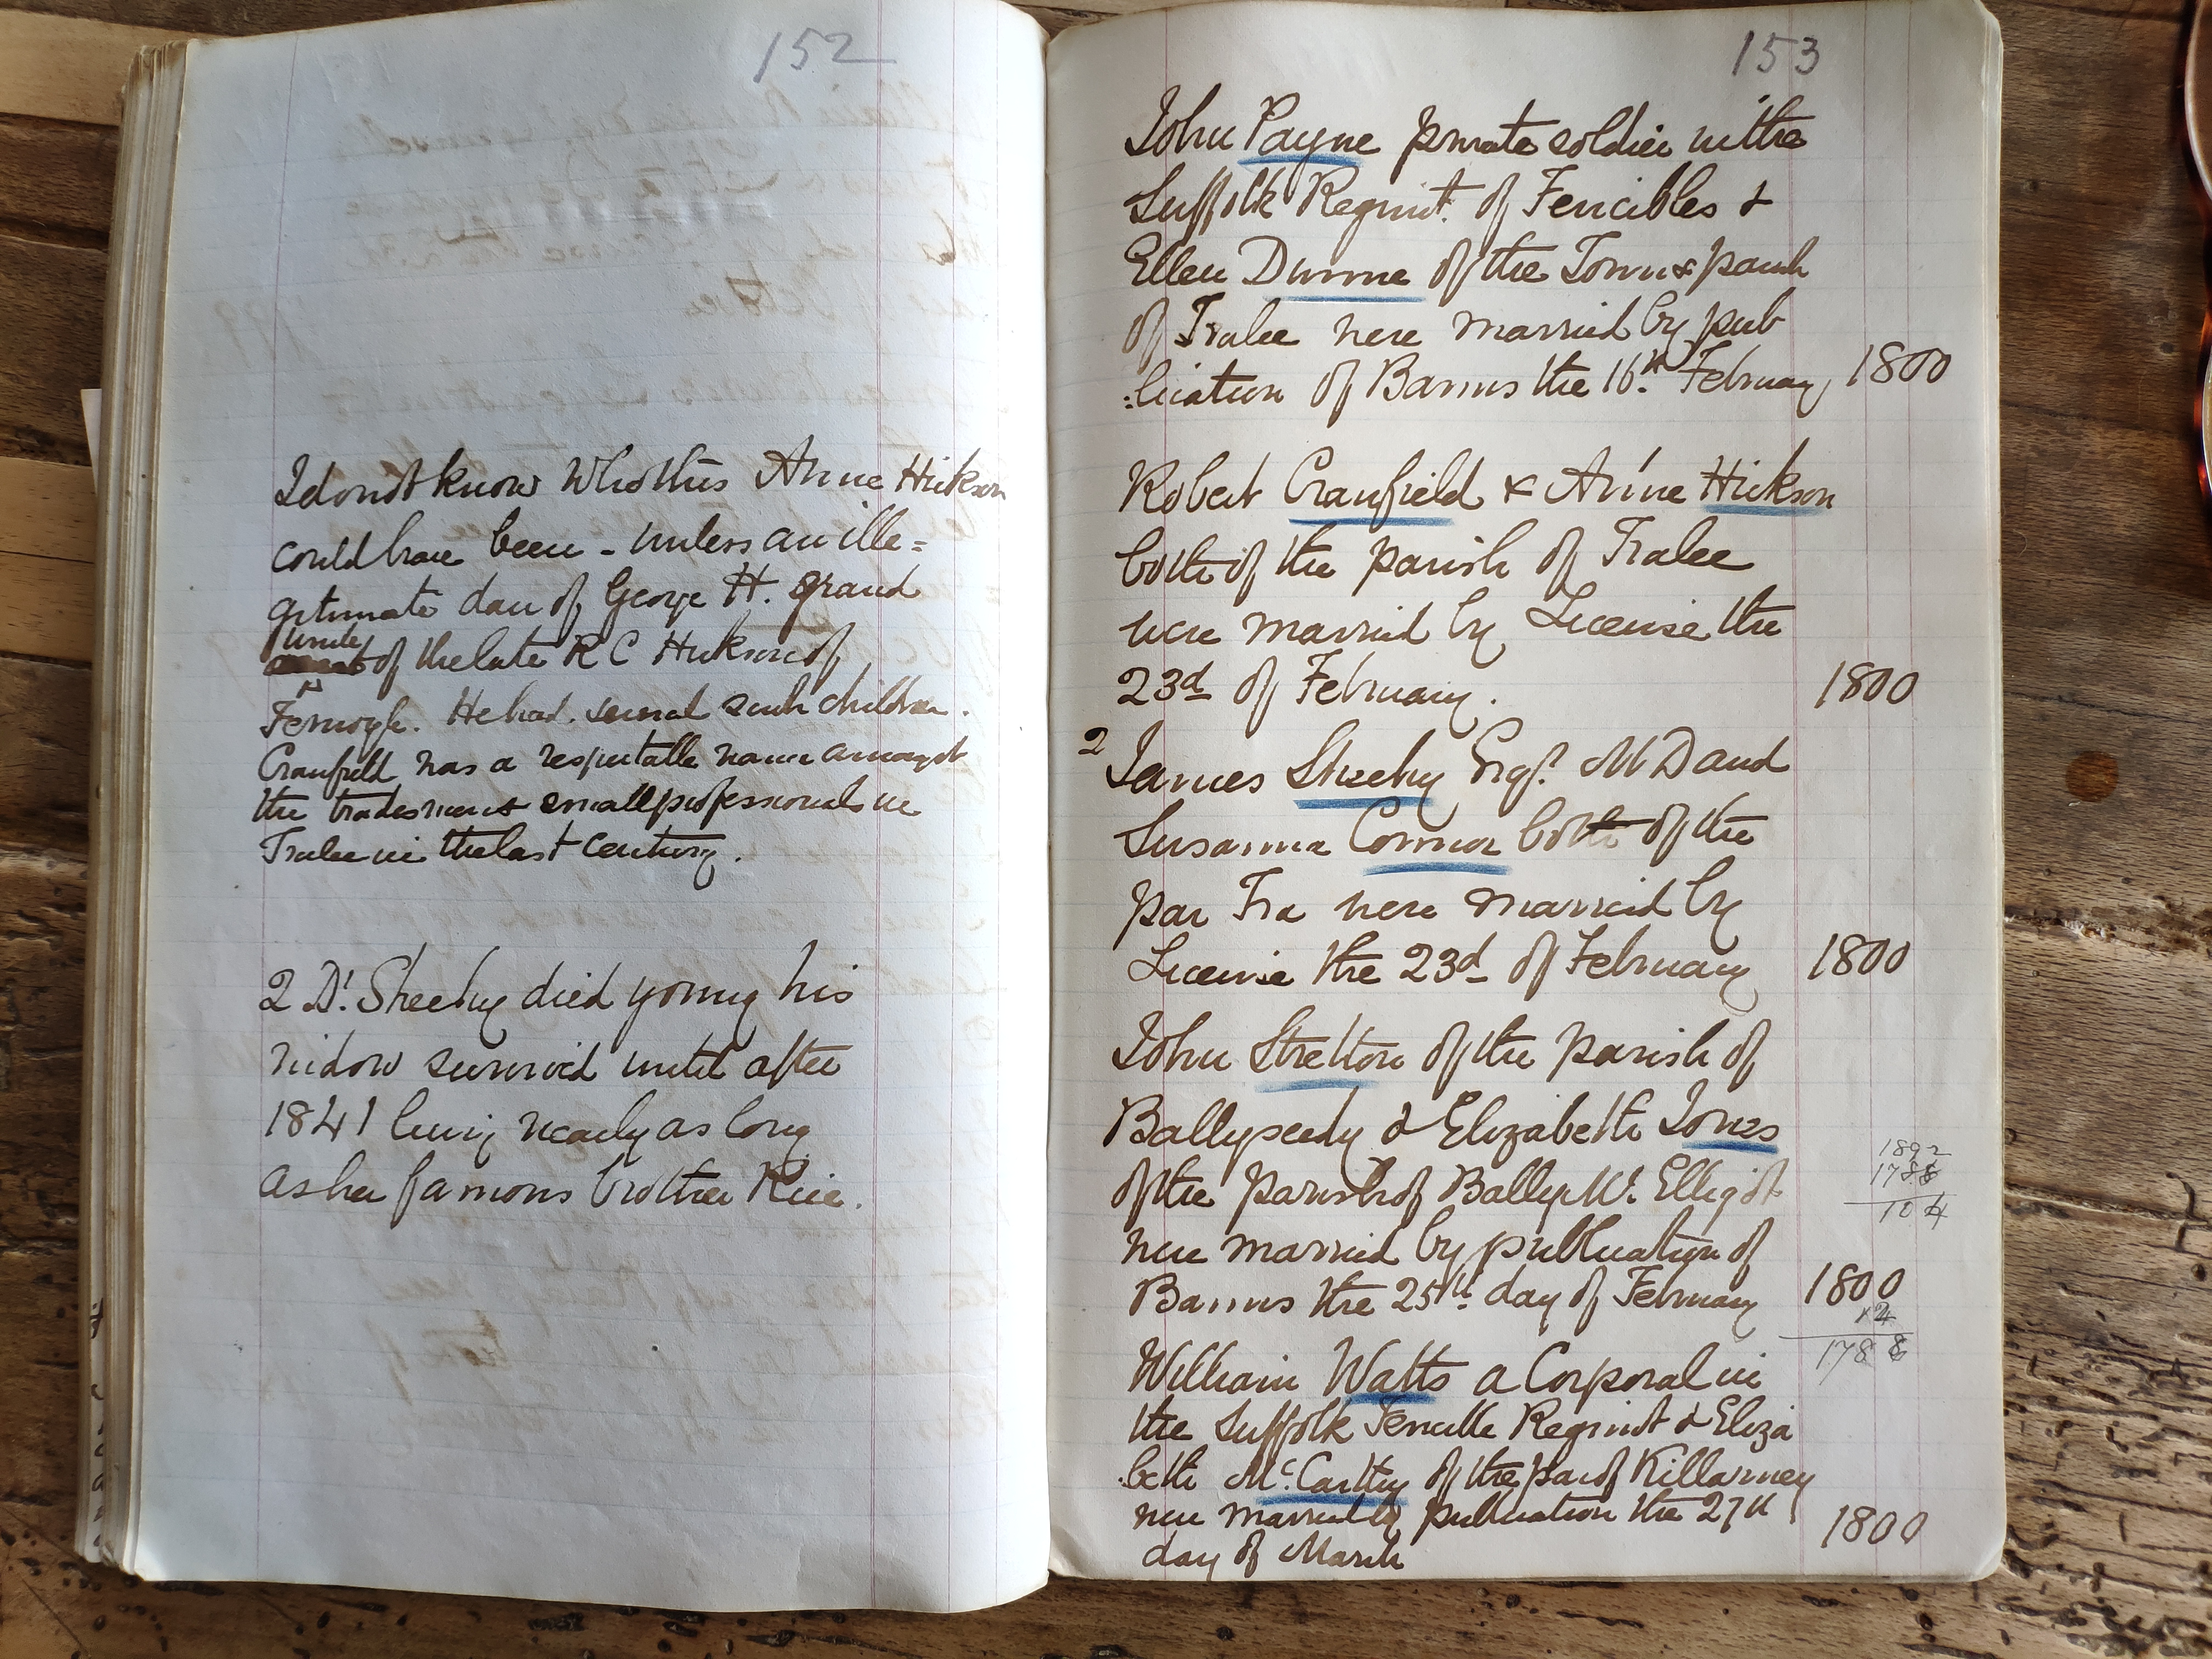 152
I do not know Who this Anne Hickson
could have been - unless an ille=
gitimate dau of George H. grand
uncle
of the late R C Hickson of
Fermoyle. He had several such children.
Cranfield was a respectable name amongst
the tradesmen & small professionals in
Tralee in the last century.
2 Dr. Sheehy died young his
widow survived until after
1841 living nearly as long
as her famous brother Rice.
153
John Payne private soldier in the
Suffolk Regimt. of Fencibles &
Ellen Dunne of the Town & parish
of Tralee were married by pub
:lication of Banns the 16th. February 1800
Robert Cranfield & Anne Hickson
both of the parish of Tralee
were married by License the
23d of February. 1800
2 James Sheehy Esqr. M D and
Susanna Connor both of the
par Tra were married by
License the 23d of February 1800
John Stretton of the parish of
Ballyseedy & Elizabeth Jones
of the parish of Bally Mc. Elligot
were married by publication of
Banns the 25th. day of February 1800
1892
1788
104
12
1788
William Watts a Corporal in
the Suffolk Fencible Regimt & Eliza
:beth McCarthy of the par of Killarney
were married by publication the 27th
day of March 1800